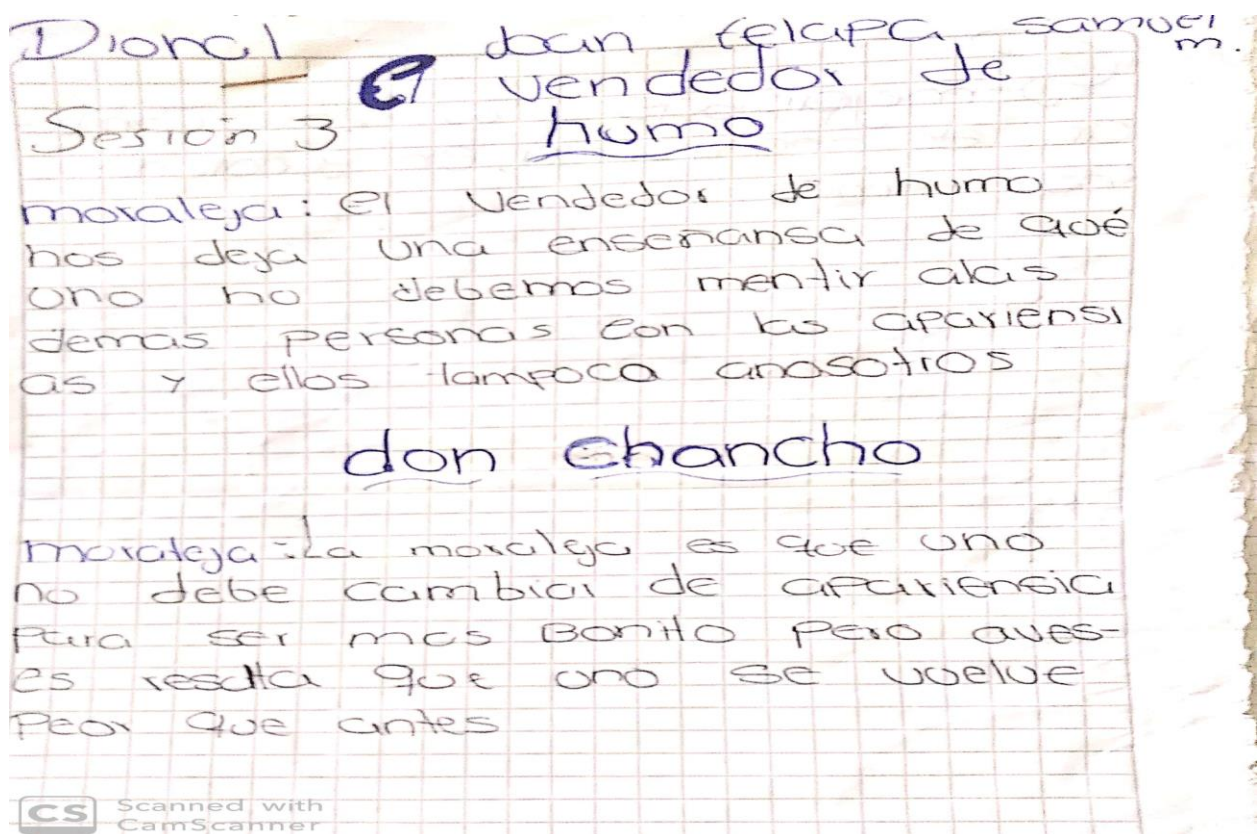 Joan felapa Samuel m.
El vendedor de
Sesión 3 humo
moraleja: el vendedor de humo
nos deja una enseñansa de qué
uno no debemos mentir alas
demas personas con las apariensi
as y ellos tampoco anosotros
don Chancho
moraleja: La moraleja es que uno
no debe cambiar de apariensia
para ser mas Bonito pero aves-
es resulta que uno se vuelve
Peor que antes
CS Scanned with
CamScanner